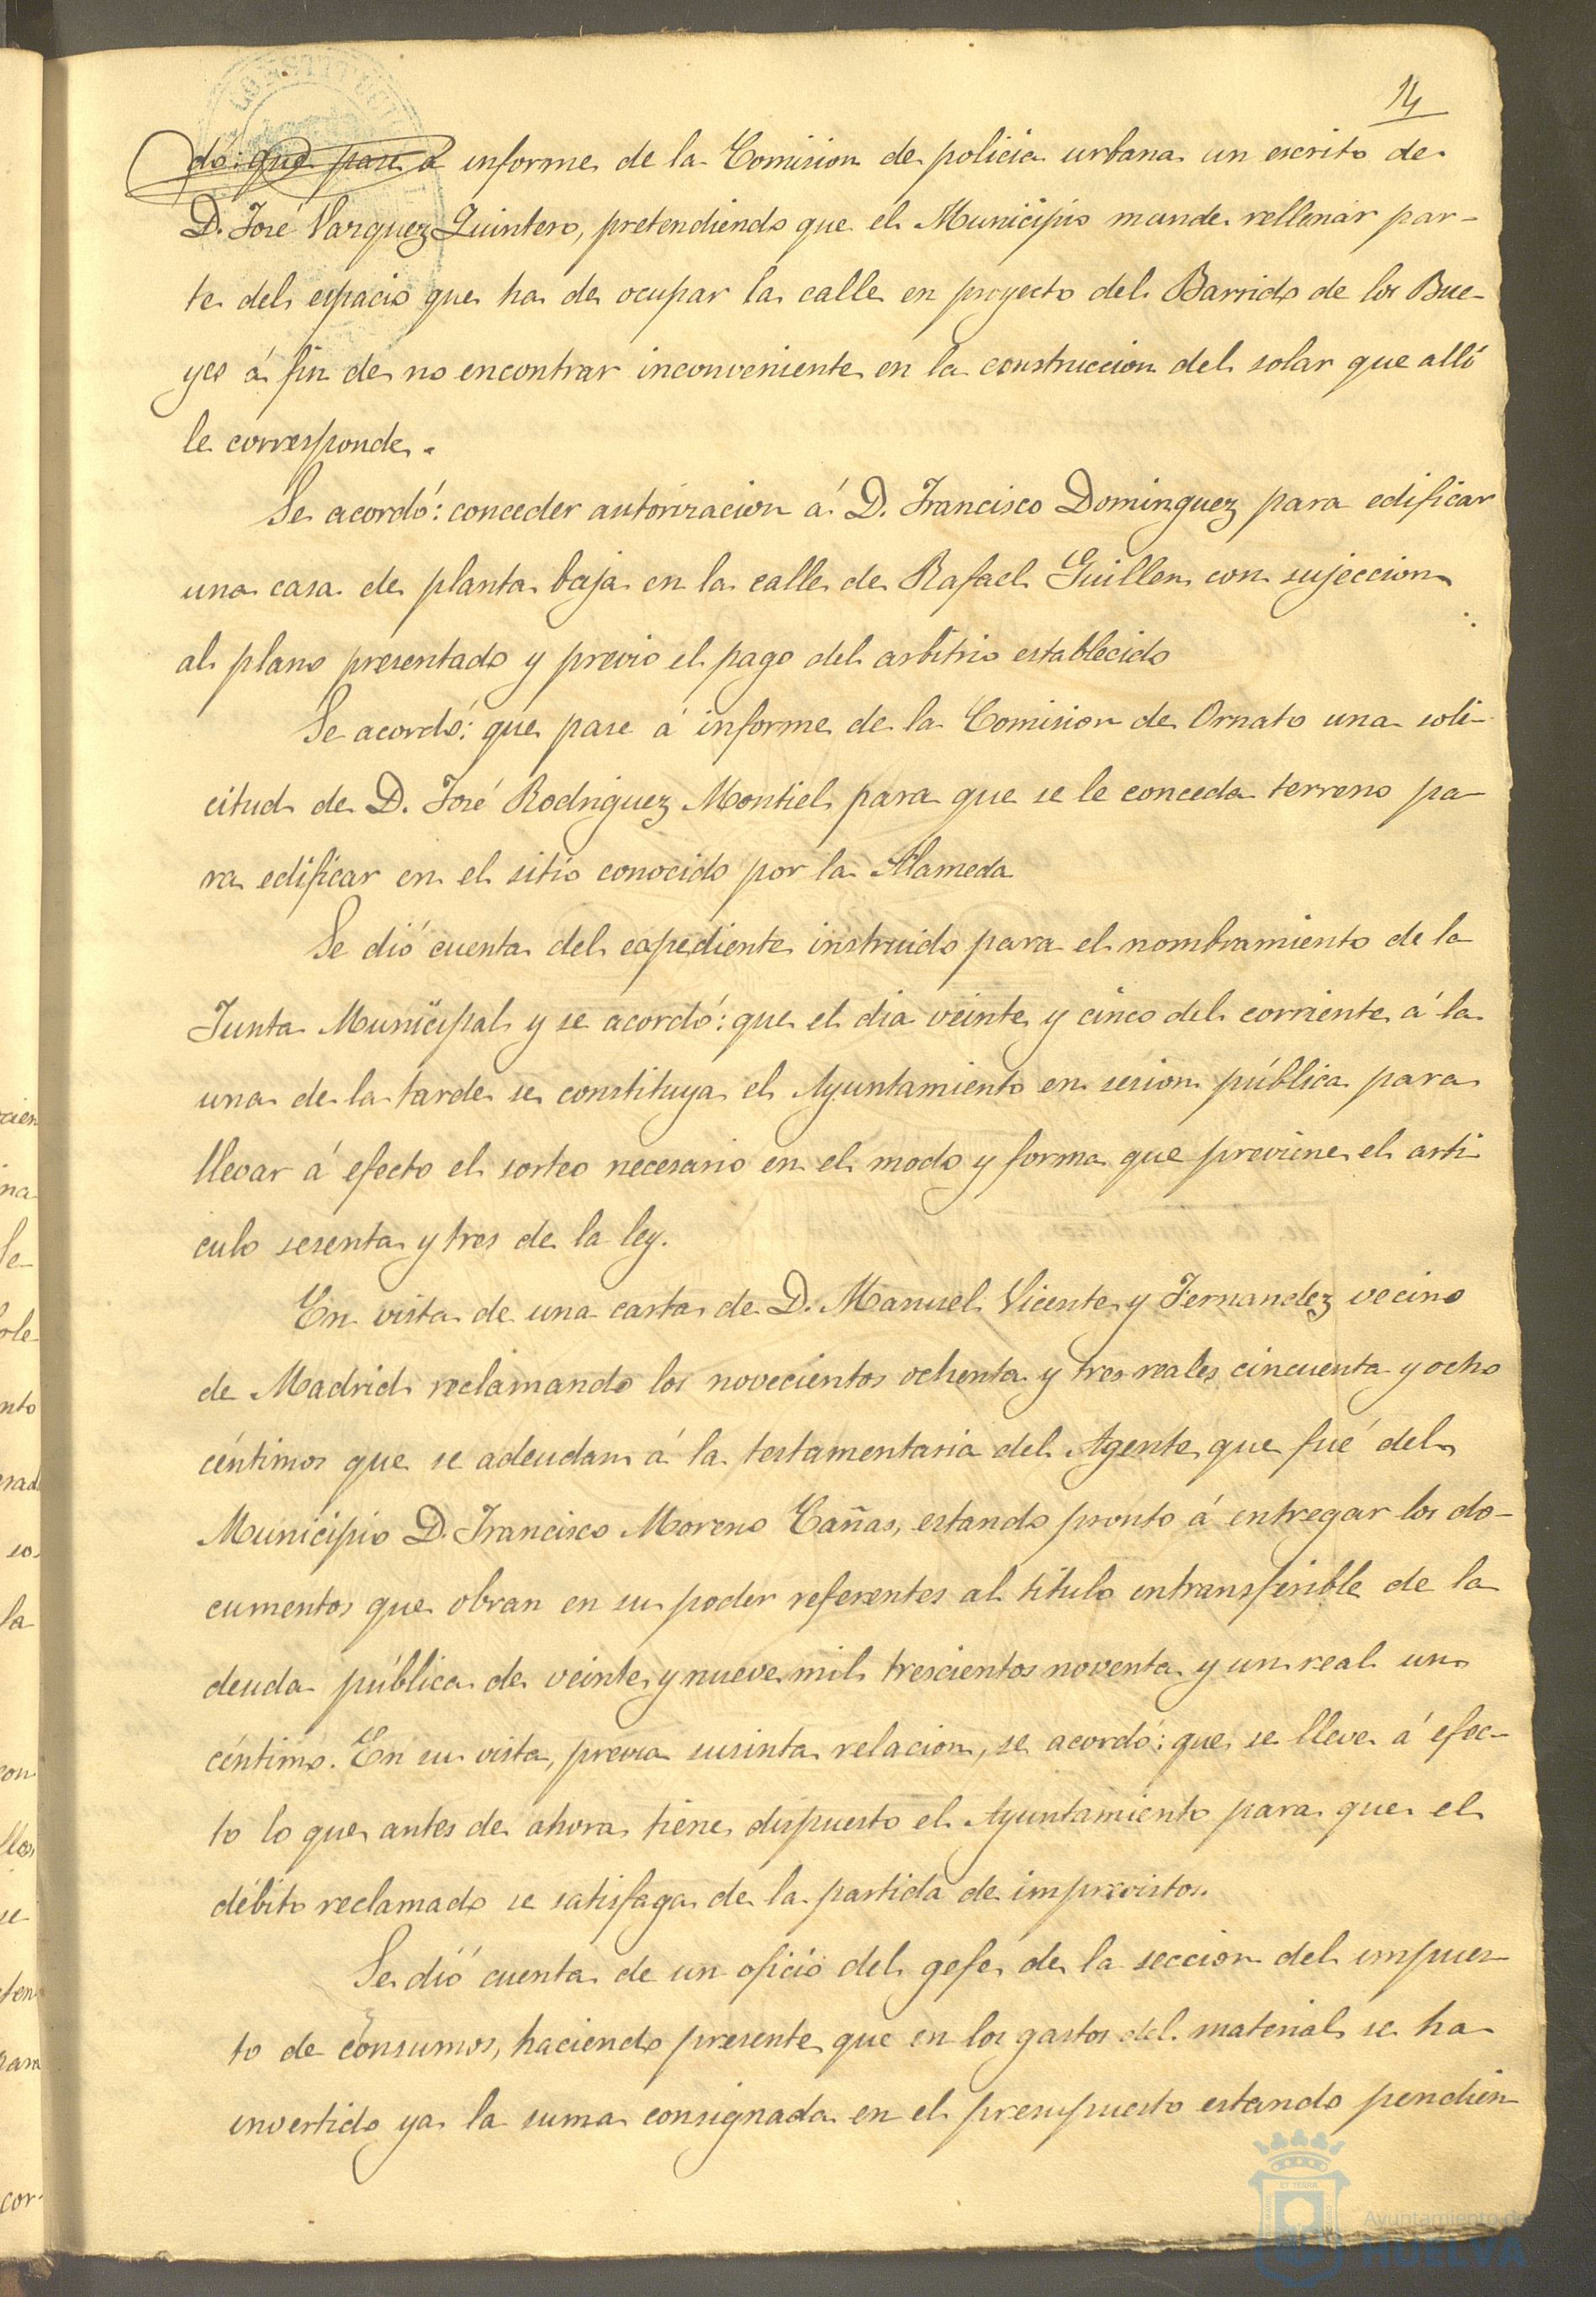 14
dó: que pase á informe de la Comision de policia urbana un escrito de
D. José Vazquez Quintero, pretendiendo que el Municipio mande rellenar par-
te del espacio que ha de ocupar la calle en proyecto del Barrido de los Bue-
yes á fin de no encontrar inconveniente en la construccion del solar que alli
le corresponde.
Se acordó: conceder autorizacion á D. Francisco Dominguez para edificar
una casa de planta baja en la calle de Rafael Guillen con sujeccion
al plano presentado y previo el pago del arbitrio establecido
Se acordó: que pase á informe de la Comision de Ornato una soli-
citud de D. José Rodriguez Montiel para que se le conceda terreno pa-
ra edificar en el sitio conocido por la Alameda
Se dió cuenta del expediente instruido para el nombramiento de la
Junta Municipal y se acordó: que el dia veinte y cinco del corriente á la
una de la tarde se constituya el Ayuntamiento en sesion pública para
llevar á efecto el sorteo necesario en el modo y forma que previene el arti
culo sesenta y tres de la ley.
En vista de una carta de D. Manuel Vicente y Fernandez vecino
de Madrid reclamando los novecientos ochenta y tres reales cincuenta y ocho
céntimos que se adeudan á la testamentaria del Agente que fué del
Municipio D. Francisco Moreno Cañas, estando pronto á entregar los do-
cumentos que obran en su poder referentes al titulo intransferible de la
deuda pública de veinte y nueve mil trescientos noventa y un real un
céntimo. En su vista, previa susinta relacion, se acordó: que se lleve á efec-
to lo que antes de ahora tiene dispuesto el Ayuntamiento para que el
débito reclamado se satisfaga de la partida de imprevistos.
Se dió cuenta de un oficio del gefe de la seccion del impues-
to de consumos, haciendo presente que en los gastos del material se ha
invertido ya la suma consignada en el presupuesto estando pendien
Ayuntamiento de
HUELVA